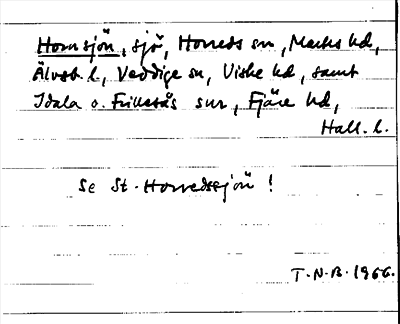 Hornsjön, sjö, Horreds sn, Marks hd,
Älvsb. l., Veddige sn, Viske hd, samt
Idala o. Frillesås snr, Fjäre hd,
Hall. l.
Se St. Horredssjön!
T.N.B. 1966.